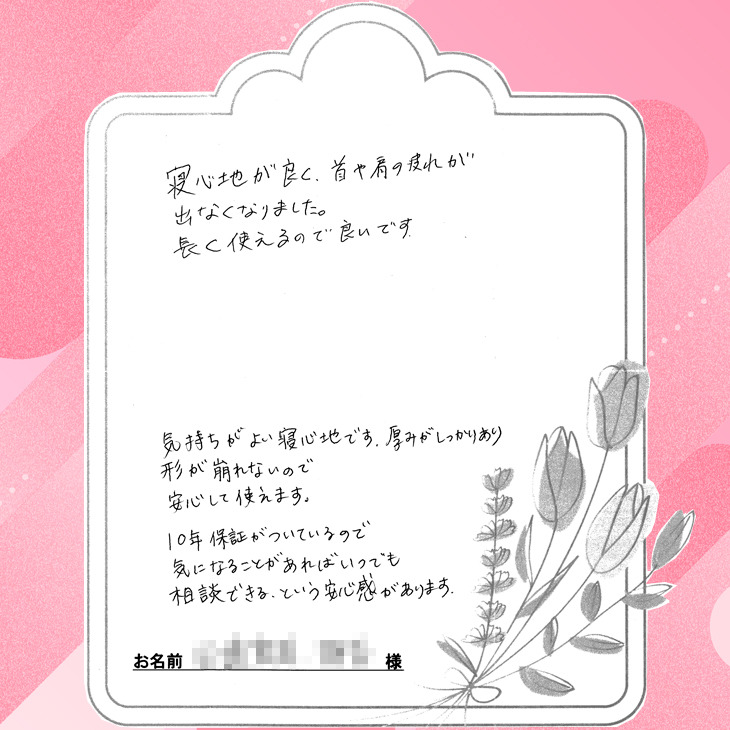 寝心地が良く、首や肩の疲れが
出なくなりました。
長く使えるので良いです
気持ちがよい寝心地です。厚みがしっかりあり
形が崩れないので
安心して使えます。
10年保証がついているので
気になることがあればいつでも
相談できる、という安心感があります。
お名前 様